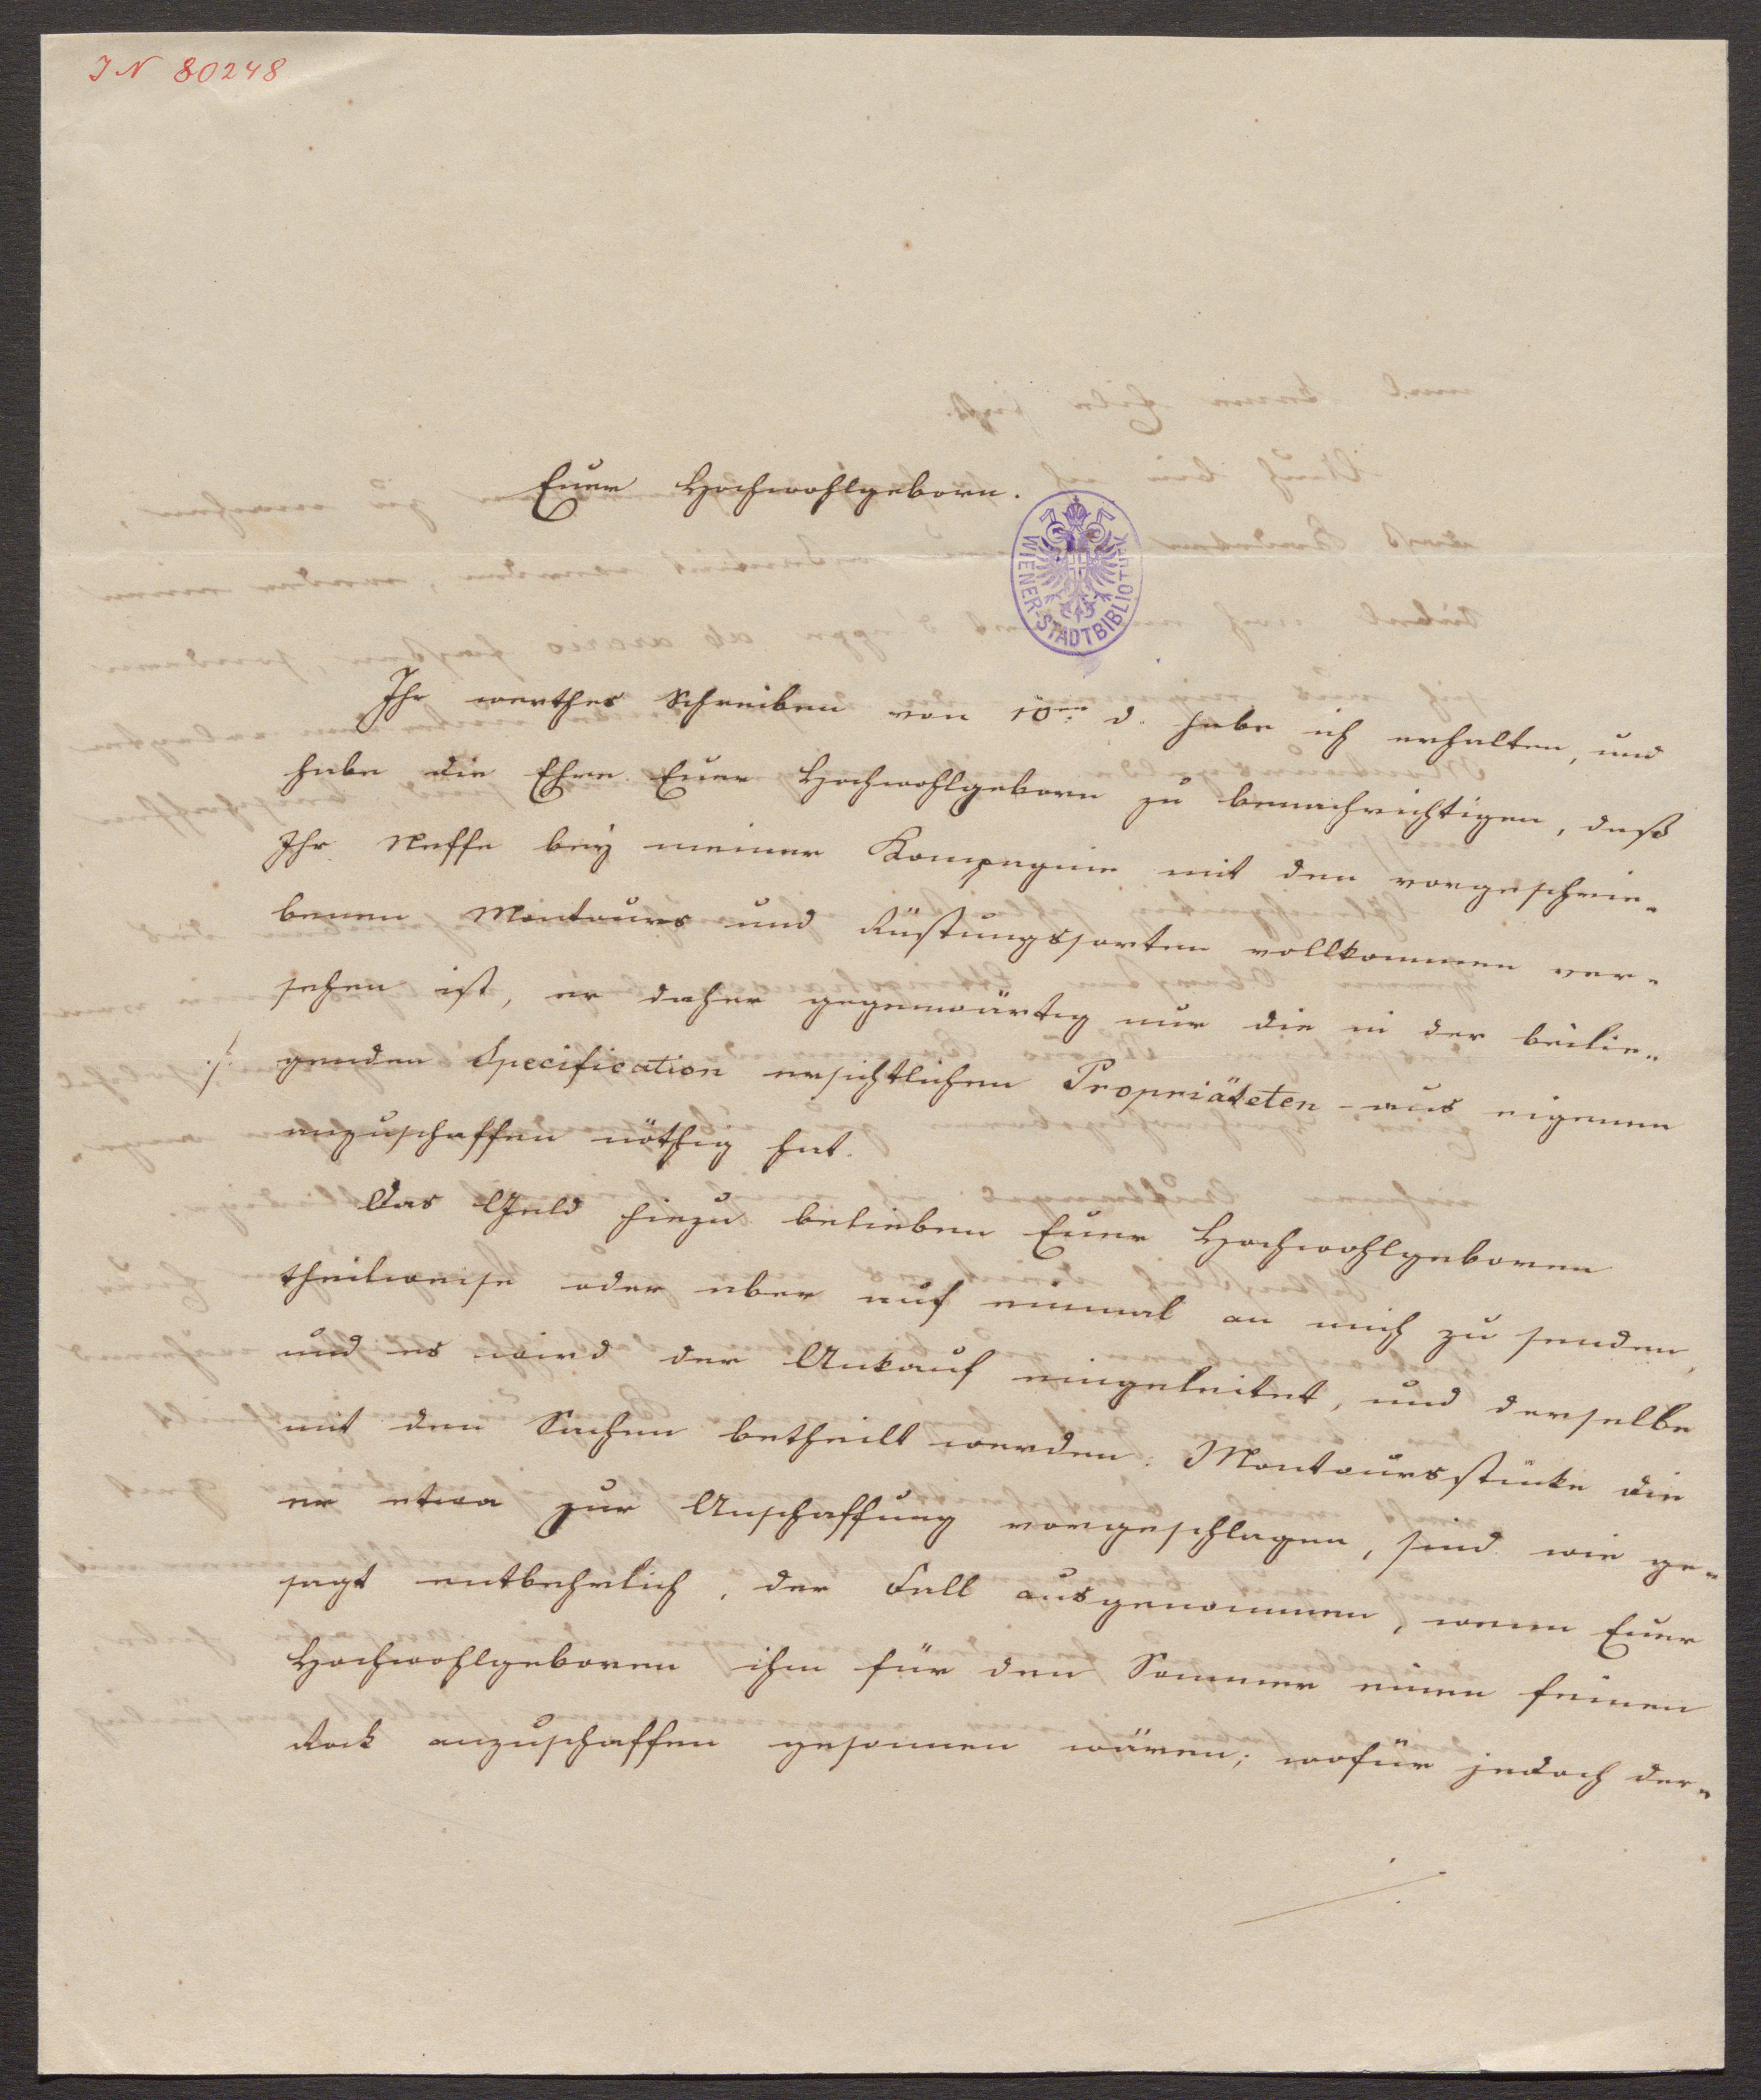 IN 80248
Euer Hochwohlgeborn.
WIENER-STADTBIBLIOTHEK
Ihr werthes Schreiben von 10ten d. habe ich erhalten, und
habe die Ehre Euer Hochwohlgeborn zu benachrichtigen, daß
Ihr Neffe beÿ meiner Kompagnie mit den vorgeschrie-
benen Montours und Rüstungssorten vollkommen ver-
sehen ist, er daher gegenwärtig nur die in der beilie-
./. genden Specification ersichtlichen Propriäteten - aus eigenen
anzuschaffen nöthig hat.
Das Geld hiezu belieben Euer Hochwohlgeboren
theilweise oder aber auf einmal an mich zu senden,
und es wird der Ankauf eingeleitet, und derselbe
mit den Sachen betheilt werden. Montoursstücke die
er etwa zur Anschaffung vorgeschlagen, sind wie ge-
sagt entbehrlich, der Fall ausgenommen, wenn Euer
Hochwohlgeboren ihm für den Sommer einen feinen
Rock anzuschaffen gesonnen wären; wofür jedoch der-
./.